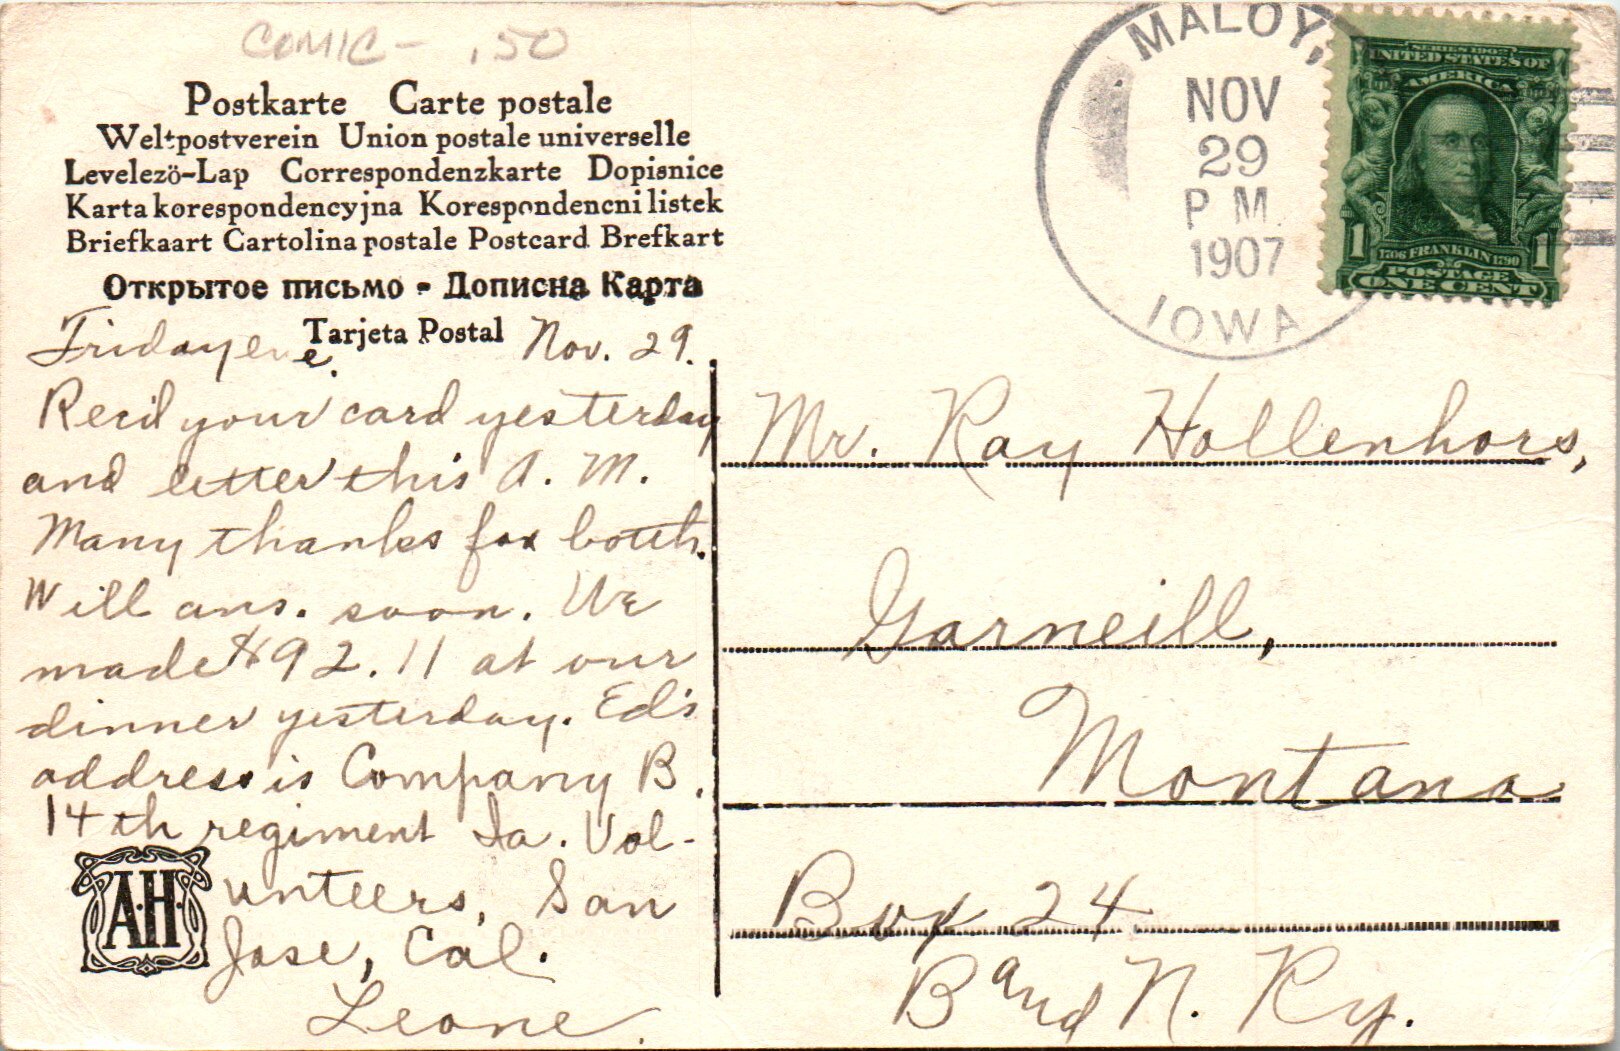 COMIC - .50
Postkarte Carte postale
Weltpostverein Union postale universelle
Levelező-Lap Correspondenzkarte Dopisnice
Karta korespondencyjna Korespondencni listek
Briefkaart Cartolina postale Postcard Brefkart
Открытое письмо - Дописна Карта
Tarjeta Postal
Friday eve. Nov. 29.
Recd your card yesterday
and letter this A. M.
Many thanks for both.
Will ans. soon. We
made $92.11 at our
dinner yesterday. Ed's
address is Company B,
14th regiment Ia. Vol-
unteers, San
Jose, Cal.
Leone.
A.H.
MALOY,
NOV
29
P M
1907
IOWA
SERIES 1902
UNITED STATES OF
AMERICA
1 1706 FRANKLIN 1790 1
POSTAGE
ONE CENT
Mr. Ray Hollenhors,
Garneill,
Montana
Box 24
B and N. Ry.